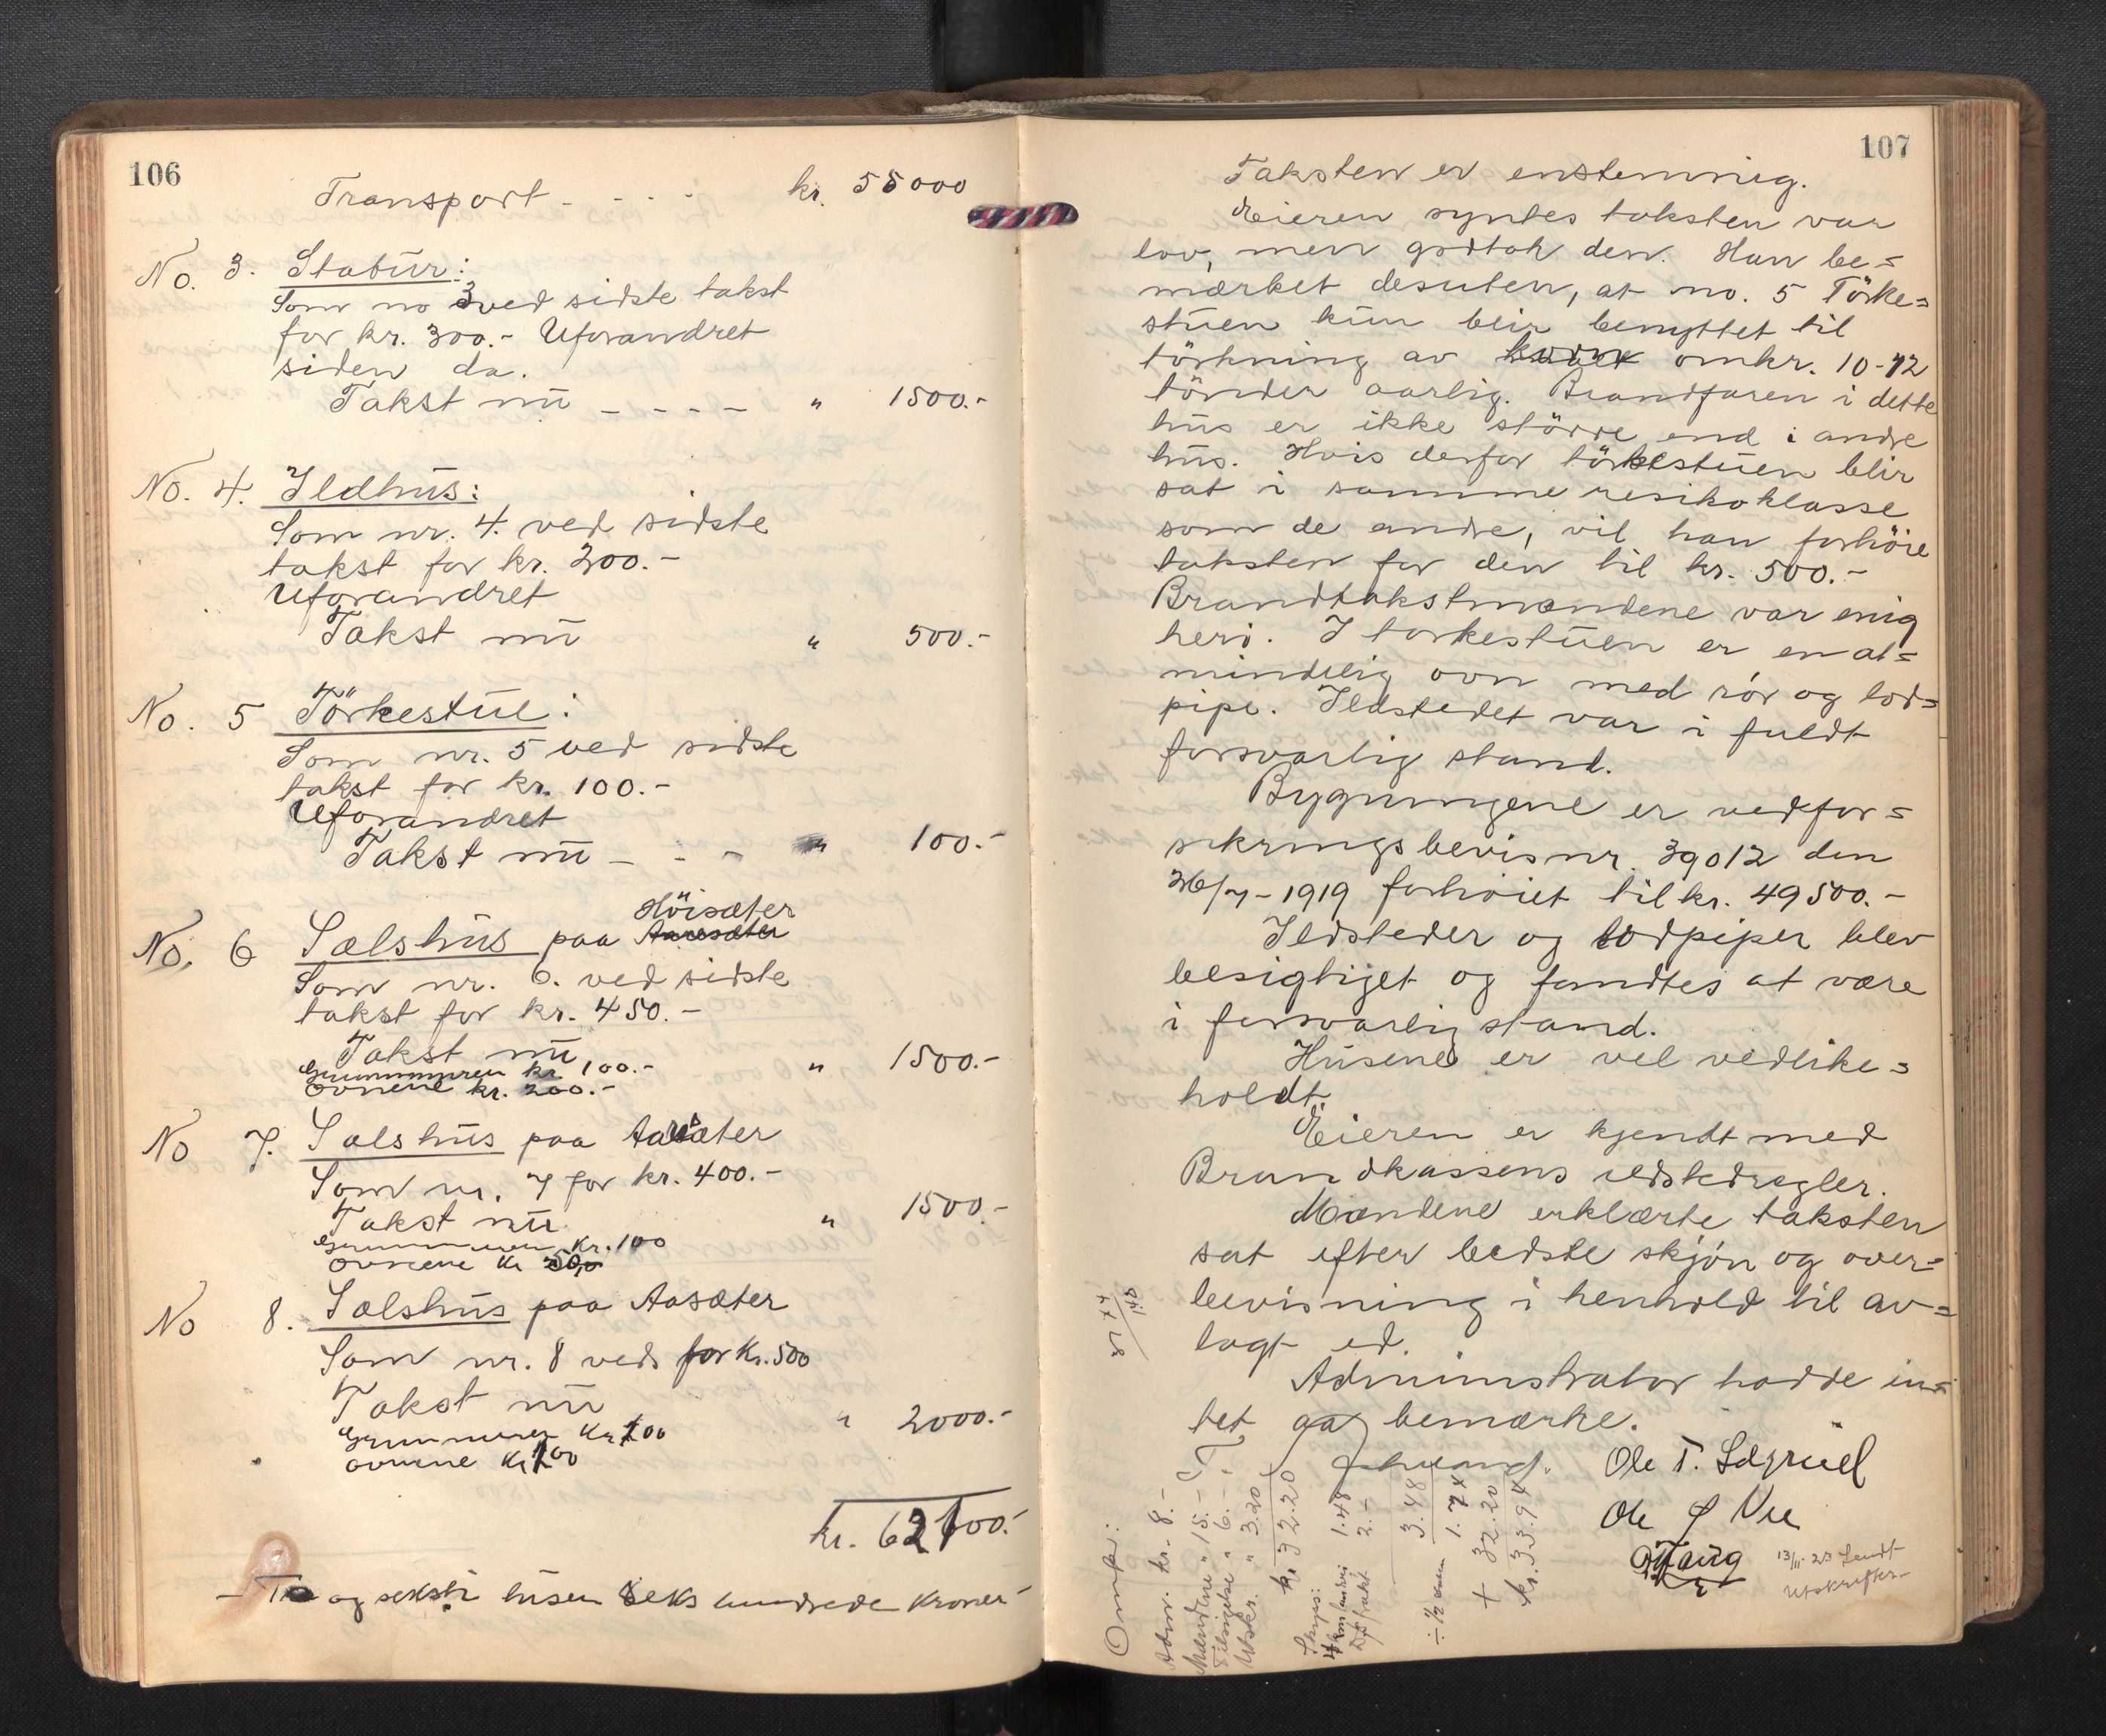 106
Transport - - - - kr. 55000
No. 3. Stabur:
Som no 3 ved sidste takst
for kr. 300.- Uforandret
siden da.
Takst nu - - - - " 1500.-
No. 4. Ildhus:
Som nr. 4. ved sidste
takst for kr. 200.-
Uforandret
Takst nu " 500.-
No. 5 Törkestue:
Som nr. 5 ved sidste
takst for kr. 100.-
Uforandret
Takst nu - - - " 100.-
Höisæter
No. 6 Sælshus paa
Som nr. 6. ved sidste
takst for kr. 450.-
Takst nu " 1500.-
Grunnmuren kr 100.-
Ovnene kr. 200.-
No 7. Sælshus paa Aasæter
Som nr. 7 for kr. 400.-
Takst nu " 1500.-
Grunnmuren Kr. 100
Ovnene Kr
No 8. Sælshus paa Aasæter
Som nr. 8 veds for Kr. 500
Takst nu " 2000.-
Grunnmuren Kr 100
ovnene Kr 100
kr. 62100.-
- To og seksti tusen seks hundrede Kroner -
107
Taksten er enstemmig.
Eieren syntes taksten var
lav, men godtok den. Han be=
mærket desuten, at no. 5 Törke=
stuen kun blir benyttet til
törkning av korn omkr. 10-12
tönder aarlig. Brandfaren i dette
hus er ikke större end i andre
hus. Hvis derfor törkestuen blir
sat i samme resikoklasse
som de andre, vil han forhöie
taksten for den til kr. 500.-
Brandtakstmændene var enig
heri. I torkestuen er en al=
mindelig ovn med rör og lod=
pipe. Ildstedet var i fuldt
forsvarlig stand.
Bygningene er ved for=
sikringsbevis nr. 39012 den
26/7-1919 forhöiet til kr. 49500.-
Ildsteder og lodpiper blev
besigtiget og fandtes at være
i forsvarlig stand.
Husene er vel vedlike=
holdt.
Eieren er kjendt med
Brandkassens ildstedregler.
Mændene erklærte taksten
sat efter bedste skjön og over=
bevisning i henhold til av=
lagt ed.
Administrator hadde in=
tet at bemærke.
Ole T.
Ole J Vee
Haug
13/11-23 Sendt
Utskrifter
Omk.:
Adm. kr. 8.-
Mændene " 15.-
Tilsigelse " 6.-
Utskr. " 3.20
kr. 32.20
Skyss:
1.48
2.-
3.48
÷ 1/2 1.74
+ 32.20
kr. 33.94